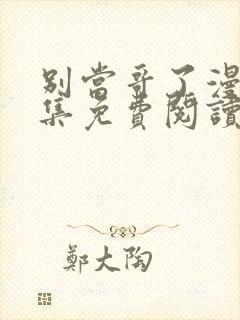 別當哥了漫
集免費閱讀
鄭大陶